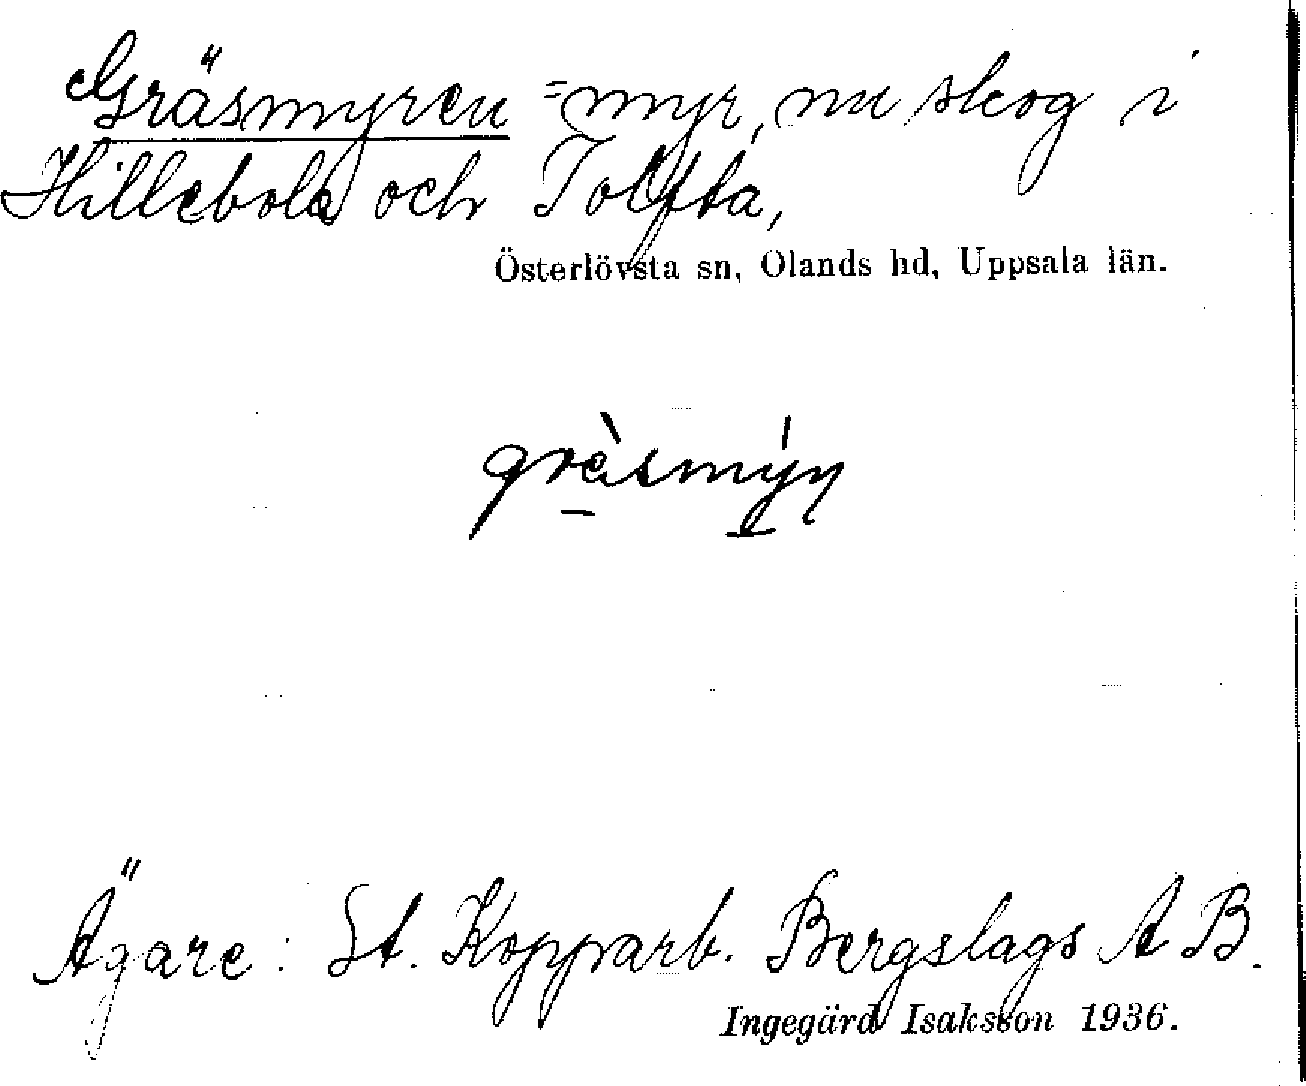 Gräsmyren = myr, nu skog i
Hillebola och Tolfta,
Österlövsta sn, Olands hd, Uppsala län.
grèsmýn
Ägare: St. Kopparb. Bergslags A B.
Ingegärd Isaksson 1936.